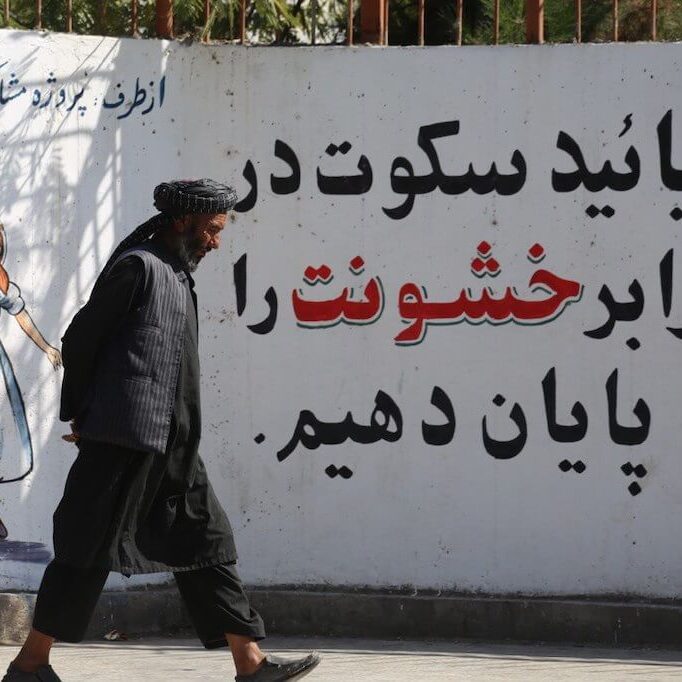 از طرف: پروژه
بائید سکوت در
رابر خشونت را
پایان دهیم.